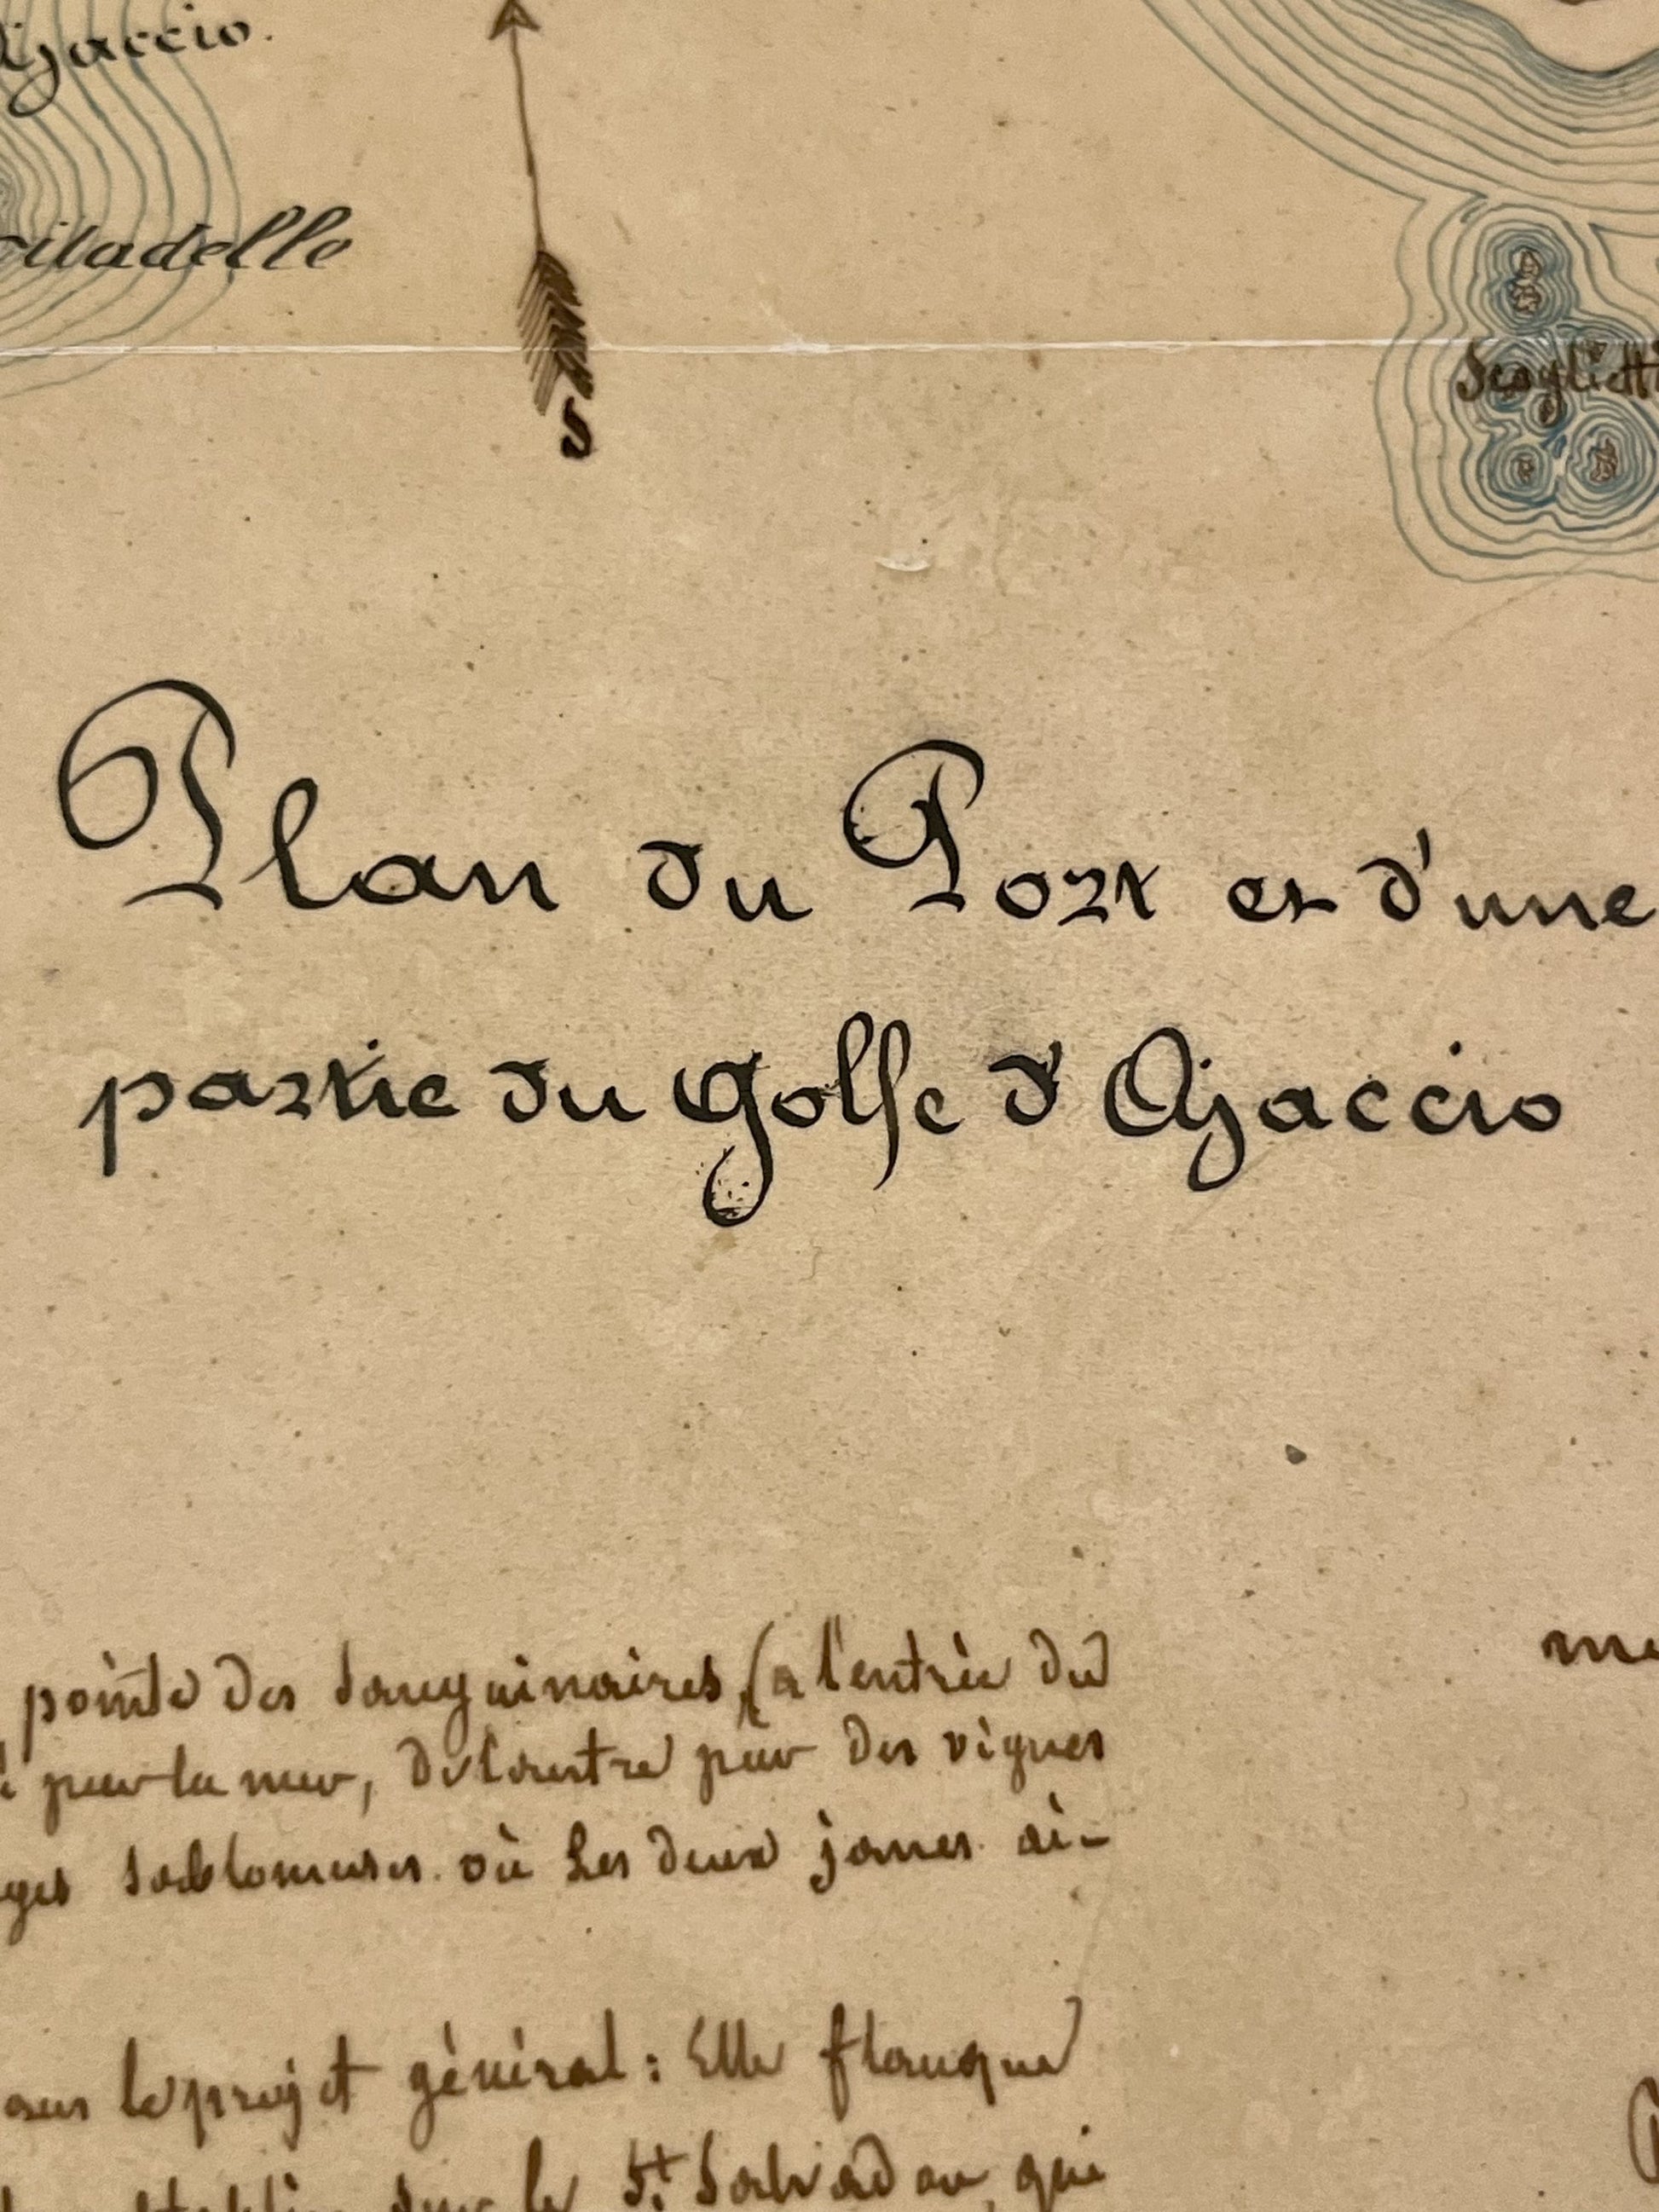 Ajaccio.
Citadelle
S
Scoglietti
Plan du Port et d'une
partie du golfe d'Ajaccio
pointe des Sanguinaires, (a l'entrée du
par la mer, de l'autre par des vignes
sablonneuses où Les deux jones ai-
sur le projet général : Elle flanque
sur le St. Salvador, qui